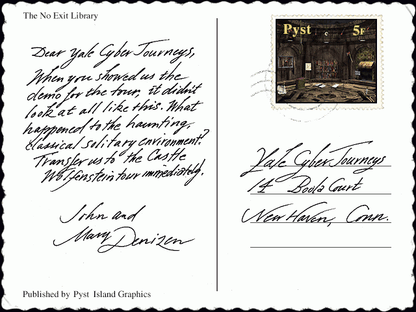 The No Exit Library
Dear Yale Cyber Journeys,
When you showed us the
demo for the tour, it didn't
look at all like this. What
happened to the haunting,
classical solitary environment?
Transfer us to the Castle
Wolfenstein tour immediately.
John and
Mary Denizen
Published by Pyst Island Graphics
Pyst 5F
Yale Cyber Journeys
14 Bools Court
New Haven, Conn.